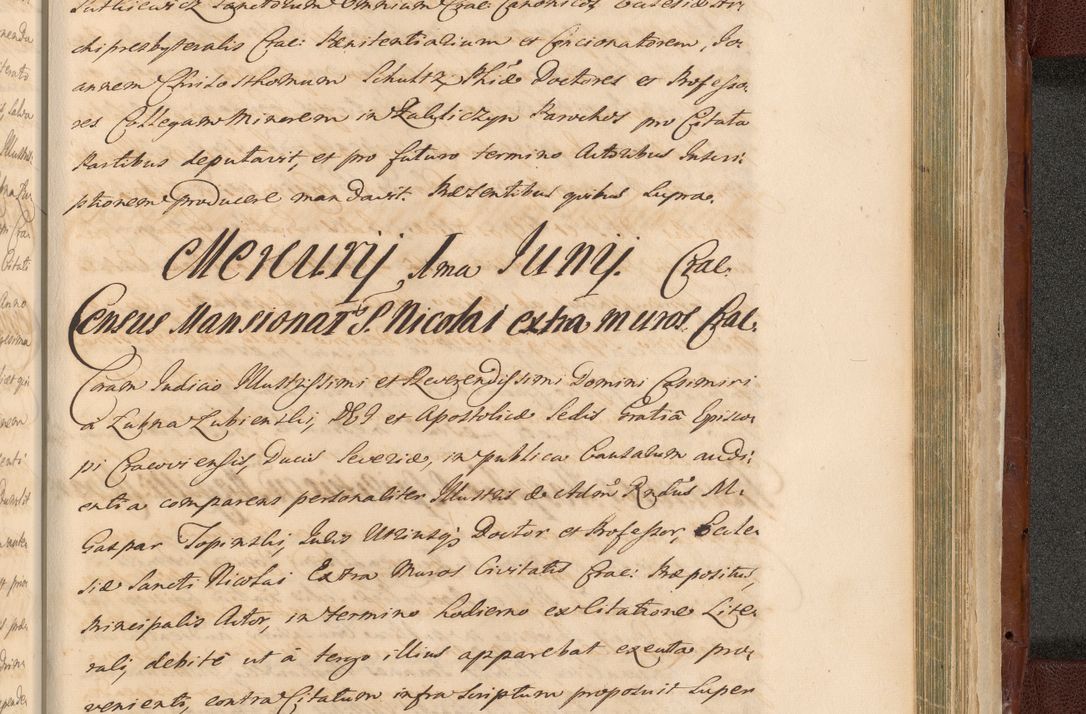 Sutkiewicz Sanctorum Omnium Crac: Canonicos, Ecclesiae Ar:
chipresbyteralis Crac: Paenitentiarium et Concionatorem, Jo:
annem Chrisosthomum Schultz, Phiae Doctores et Professo:
res Collegam Minorem in Zabliczyn Parochos pro Citata
Partibus deputavit, et pro futuro termino Actoribus Inscri:
ptionem Producere mandavit. Praesentibus quibus supra.
Mercurij, Ima Junij. Crac.
Census Mansionar: S. Nicolai extra muros Crac.
Coram Judicio Illustrissimi et Reverendissimi Domini Casimiri
à Łubna Łubienski, DEI et Apostolicae Sedis Gratia Episco:
pi Cracoviensis, Ducis Severiae, in publica Causarum audi:
entia comparens personaliter Illustris et Adm Rndus M.
Gaspar Topinski, Juris Utriusq; Doctor et Professor, Eccle:
siae Sancti Nicolai Extra Muros Civitatis Crac: Praepositus,
Principalis Actor, in termino hodierno ex Citatione Lite:
rali, debitè ut à tergo illius apparebat executa pro:
venienti, contra Citatum infrascriptum proposuit super